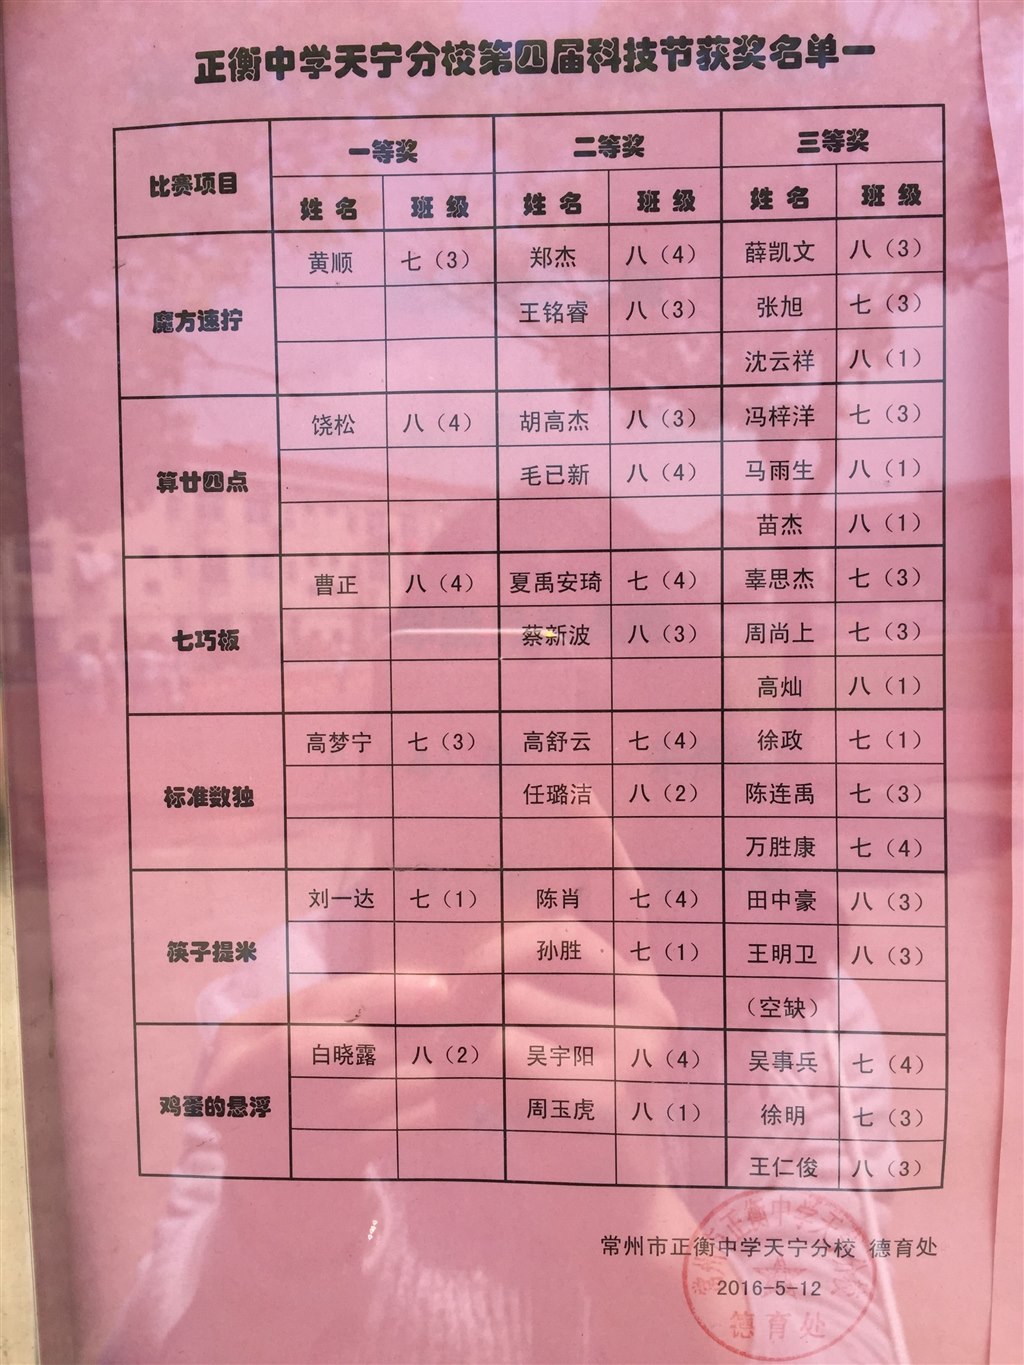 正衡中学天宁分校第四届科技节获奖名单一
比赛项目 一等奖 二等奖 三等奖
姓名 班级 姓名 班级 姓名 班级
魔方速拧
黄顺 七（3） 郑杰 八（4） 薛凯文 八（3）
王铭睿 八（3） 张旭 七（3）
沈云祥 八（1）
算廿四点
饶松 八（4） 胡高杰 八（3） 冯梓洋 七（3）
毛已新 八（4） 马雨生 八（1）
苗杰 八（1）
七巧板
曹正 八（4） 夏禹安琦 七（4） 辜思杰 七（3）
蔡新波 八（3） 周尚上 七（3）
高灿 八（1）
标准数独
高梦宁 七（3） 高舒云 七（4） 徐政 七（1）
任璐洁 八（2） 陈连禹 七（3）
万胜康 七（4）
筷子提米
刘一达 七（1） 陈肖 七（4） 田中豪 八（3）
孙胜 七（1） 王明卫 八（3）
（空缺）
鸡蛋的悬浮
白晓露 八（2） 吴宇阳 八（4） 吴事兵 七（4）
周玉虎 八（1） 徐明 七（3）
王仁俊 八（3）
常州市正衡中学天宁分校 德育处
2016-5-12
德育处